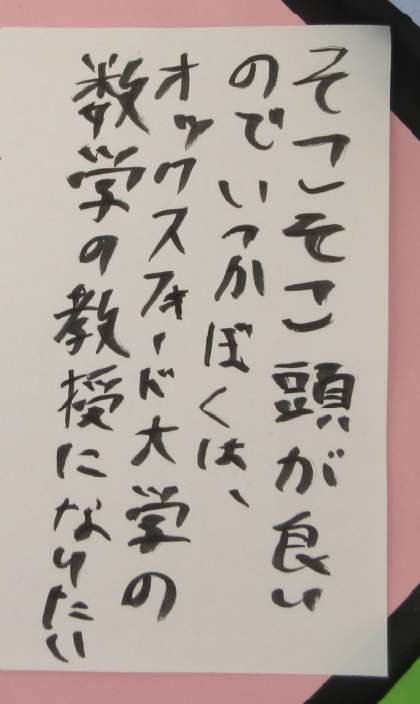 そこそこ頭が良い
のでいつかぼくは、
オックスフォード大学の
数学の教授になりたい